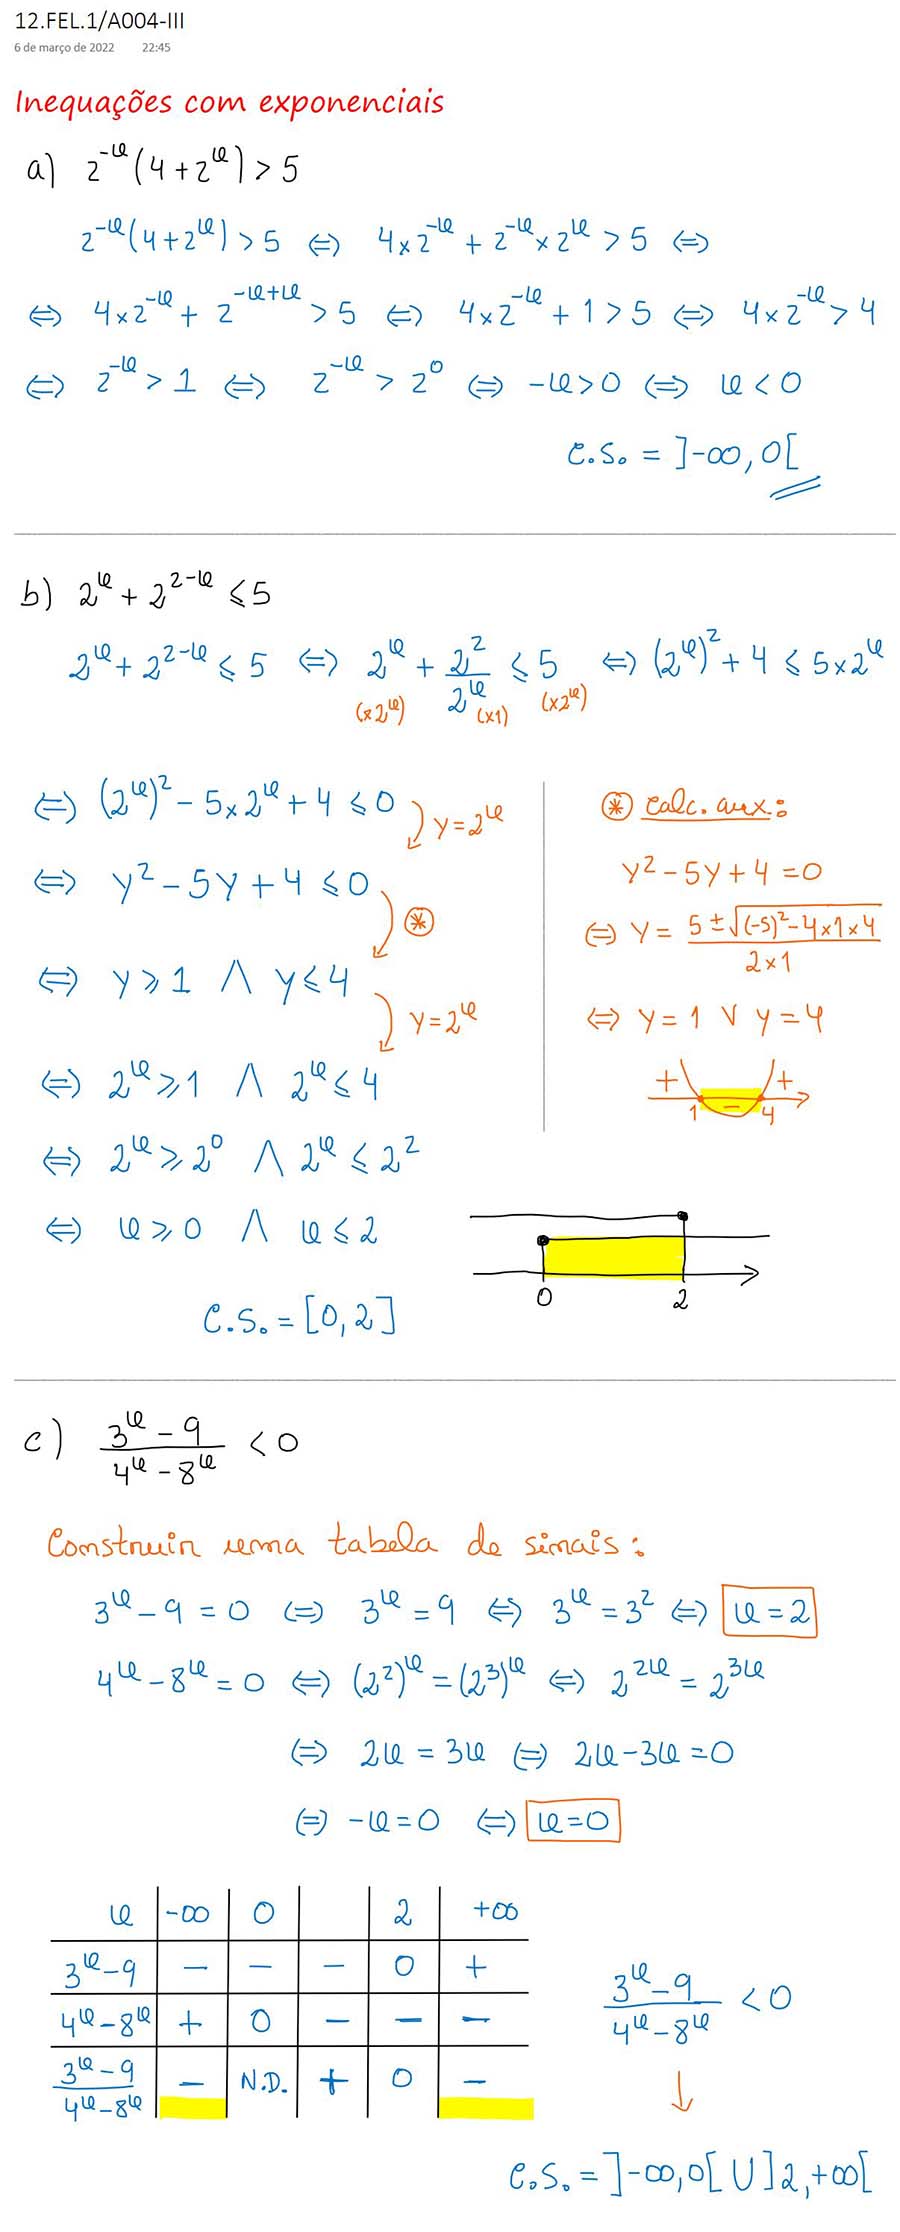 12.FEL.1/A004-III
6 de março de 2022 22:45
Inequações com exponenciais
a) 2^{-x}(4+2^{x}) > 5
2^{-x}(4+2^{x}) > 5 ⇔ 4×2^{-x} + 2^{-x}×2^{x} > 5 ⇔
⇔ 4×2^{-x} + 2^{-x+x} > 5 ⇔ 4×2^{-x} + 1 > 5 ⇔ 4×2^{-x} > 4
⇔ 2^{-x} > 1 ⇔ 2^{-x} > 2^{0} ⇔ -x > 0 ⇔ x < 0
C.S. = ]-∞, 0[
b) 2^{x} + 2^{2-x} ≤ 5
2^{x} + 2^{2-x} ≤ 5 ⇔ 2^{x} + 2^{2}/2^{x} ≤ 5 ⇔ (2^{x})^{2} + 4 ≤ 5×2^{x}
(×2^{x}) (×1) (×2^{x})
⇔ (2^{x})^{2} - 5×2^{x} + 4 ≤ 0
y = 2^{x}
⇔ y^{2} - 5y + 4 ≤ 0
(*)
⇔ y ≥ 1 ∧ y ≤ 4
y = 2^{x}
⇔ 2^{x} ≥ 1 ∧ 2^{x} ≤ 4
⇔ 2^{x} ≥ 2^{0} ∧ 2^{x} ≤ 2^{2}
⇔ x ≥ 0 ∧ x ≤ 2
C.S. = [0, 2]
(*) calc. aux.:
y^{2} - 5y + 4 = 0
⇔ y = (5 ± √((-5)^{2} - 4×1×4))/(2×1)
⇔ y = 1 ∨ y = 4
+ - +
1 4
0 2
c) (3^{x} - 9)/(4^{x} - 8^{x}) < 0
Construir uma tabela de sinais:
3^{x} - 9 = 0 ⇔ 3^{x} = 9 ⇔ 3^{x} = 3^{2} ⇔ x = 2
4^{x} - 8^{x} = 0 ⇔ (2^{2})^{x} = (2^{3})^{x} ⇔ 2^{2x} = 2^{3x}
⇔ 2x = 3x ⇔ 2x - 3x = 0
⇔ -x = 0 ⇔ x = 0
x -∞ 0 2 +∞
3^{x} - 9 - - - 0 +
4^{x} - 8^{x} + 0 - - -
(3^{x} - 9)/(4^{x} - 8^{x}) - N.D. + 0 -
(3^{x} - 9)/(4^{x} - 8^{x}) < 0
↓
C.S. = ]-∞, 0[ ∪ ]2, +∞[